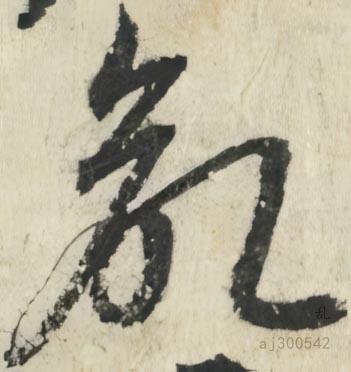 亂
乱
aj300542